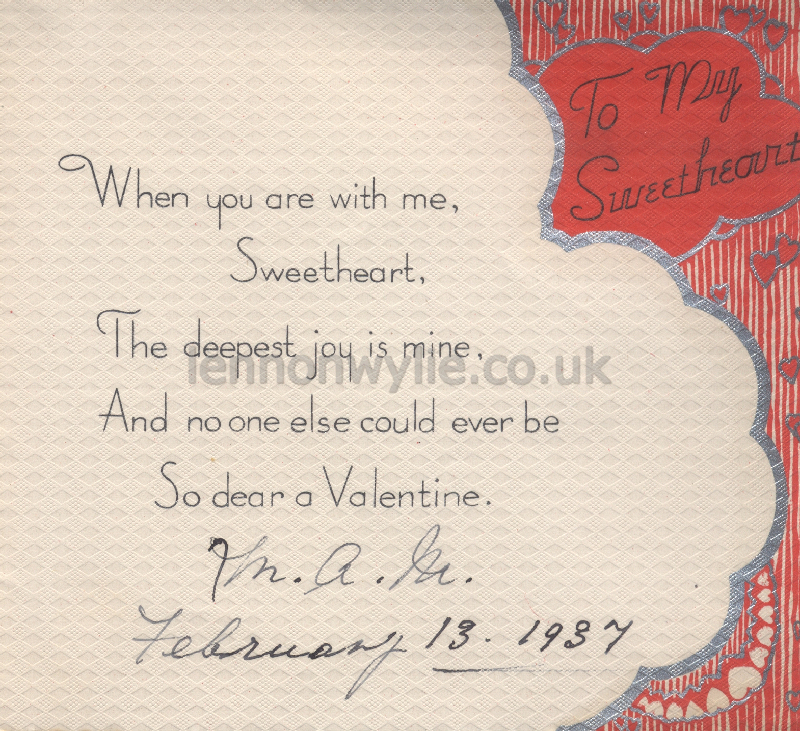 To My
Sweetheart
When you are with me,
Sweetheart,
The deepest joy is mine,
And no one else could ever be
So dear a Valentine.
M. A. M.
February 13. 1937
lennonwylie.co.uk